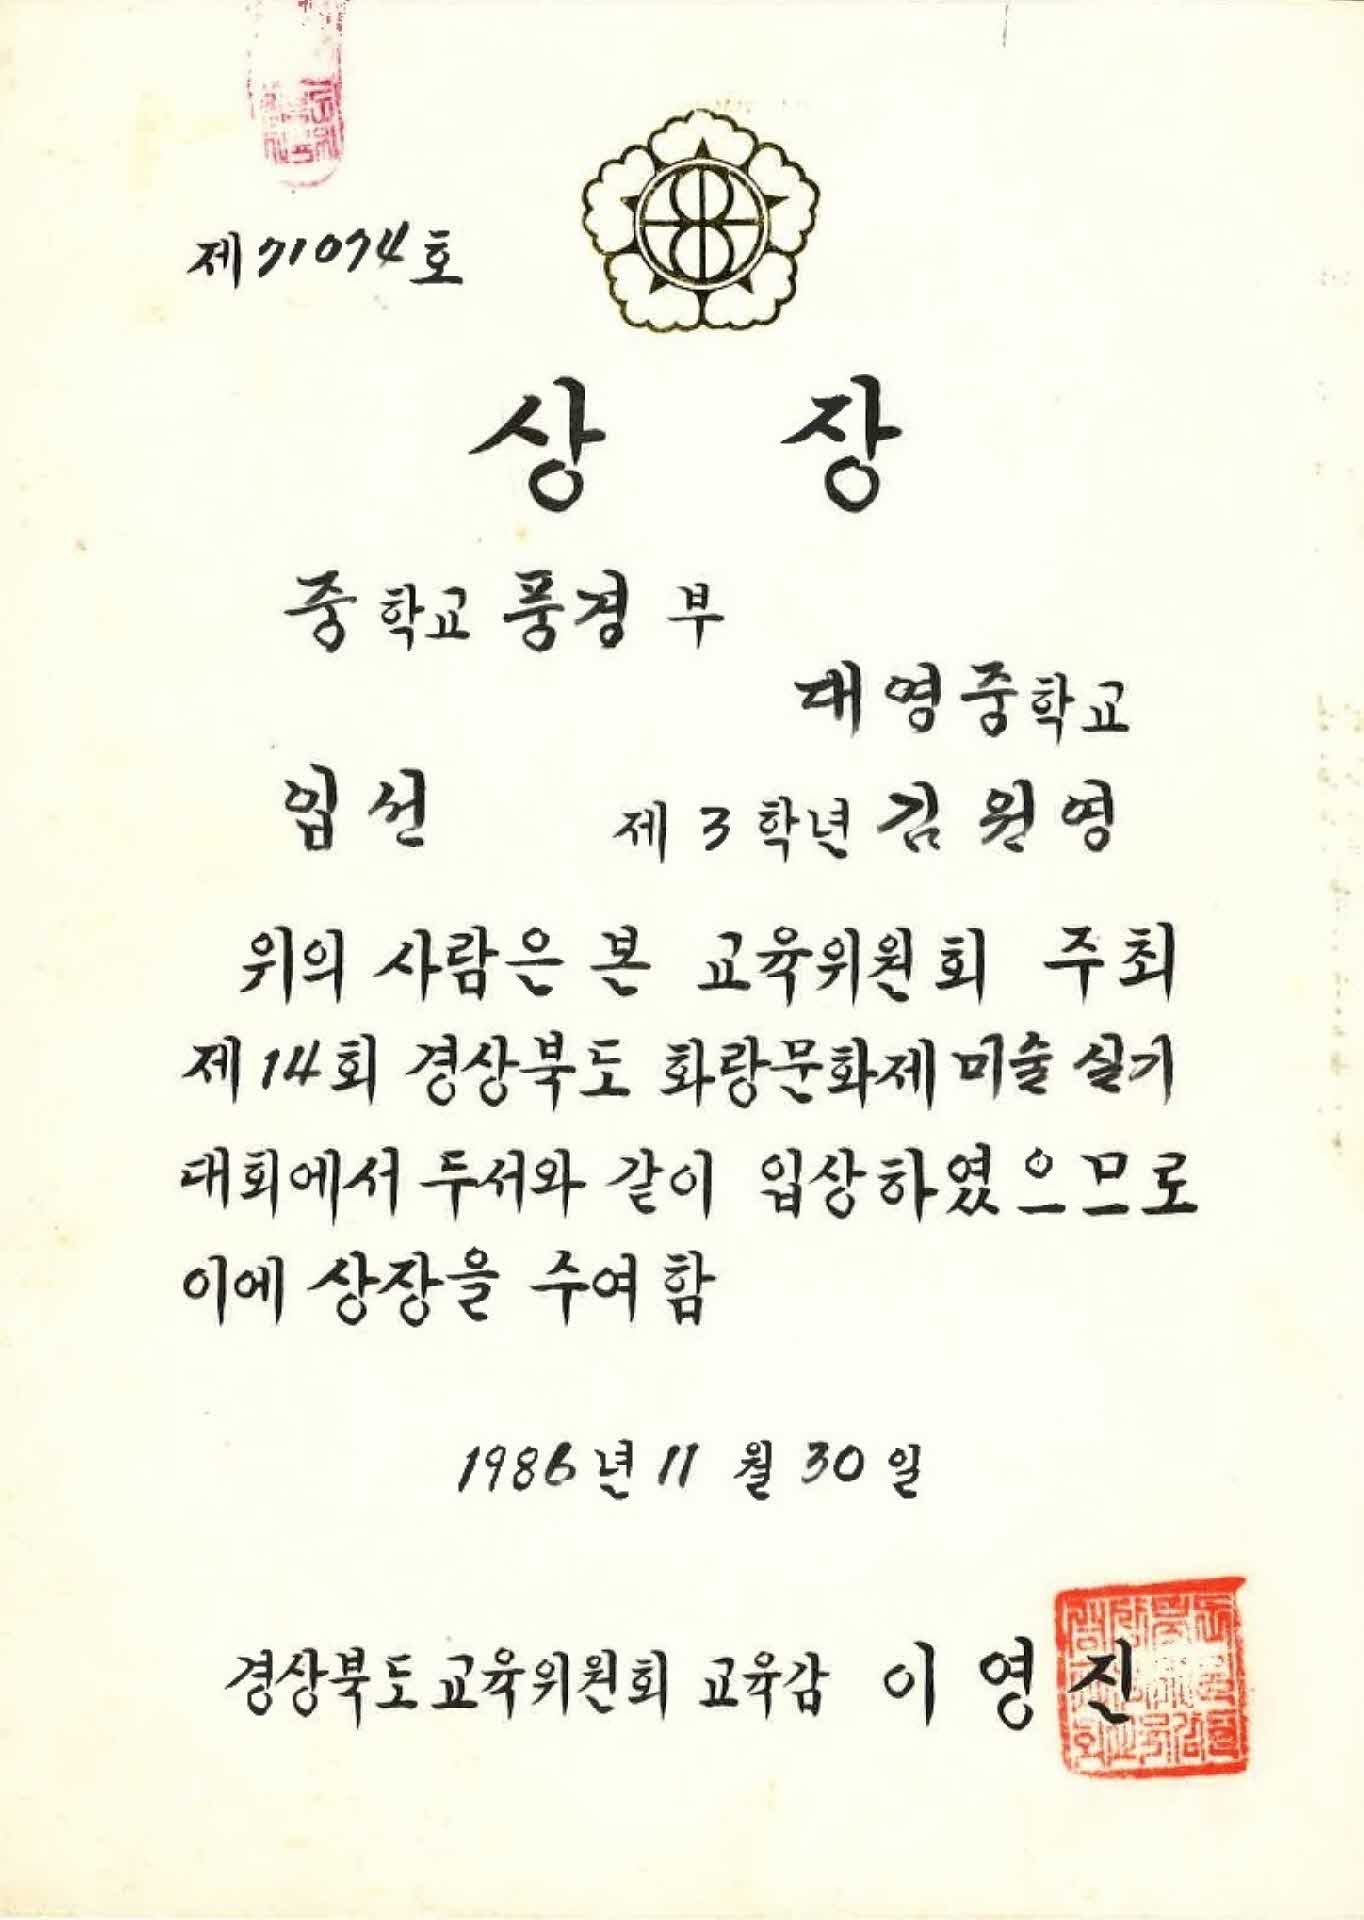 제71074호
상장
중학교 풍경 부
대영중학교
입선 제 3 학년 김원영
위의 사람은 본 교육위원회 주최
제14회 경상북도 화랑문화제 미술 실기
대회에서 두서와 같이 입상하였으므로
이에 상장을 수여함
1986년 11월 30일
경상북도교육위원회 교육감 이영진